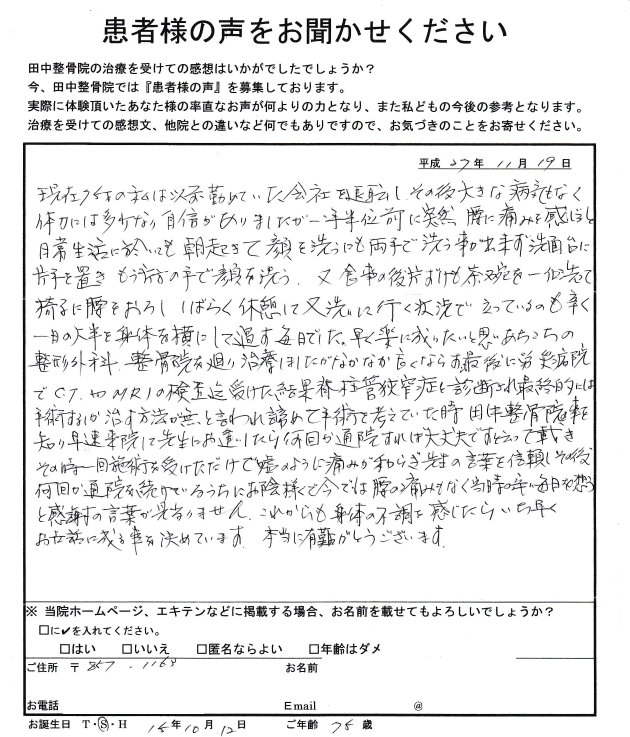 患者様の声をお聞かせください
田中整骨院の治療を受けての感想はいかがでしたでしょうか？
今、田中整骨院では『患者様の声』を募集しております。
実際に体験頂いたあなた様の率直なお声が何よりの力となり、また私どもの今後の参考となります。
治療を受けての感想文、他院との違いなど何でもありですので、お気づきのことをお寄せください。
平成 27年 11月 19日
現在75才の私は以前勤めていた会社を退職しその後大きな病気もなく
体力には多少なり自信が有りましたが一年半位前に突然 腰に痛みを感ほと
日常生活に於いても 朝起きて 顔を洗うにも両手で洗う事が出来ず洗面台に
片手を置き もう片方の手で顔を洗う. 又 食事の後片ずけも 茶碗を一個洗って
椅子に腰をおろし しばらく休憩して又洗いに行く状況で 立っているのも辛く
一日の大半を身体を横にして過す毎日でした. 早く楽に成りたいと思いあちこちの
整形外科. 整骨院を廻り治療はしたがなかなか良くならず最後に労災病院
でCTやMRIの検査迄受けた結果脊柱管狭窄症と診断され最終的には
手術するしか治す方法が無いと言われ諦めて手術を考えていた時 田中整骨院様を
知り早速来院して先生にお逢いしたら何回か通院すれば大丈夫ですと言って戴き
その時一回施術を受けただけで嘘のように痛みが和らぎ先生の言葉を信頼しその後
何回か通院を続けているうちにお陰様で今では腰の痛みもなく当時の辛い毎日を想う
と感謝の言葉が見当りません. これからも身体の不調を感じたらいち早く
お世話に成る事を決めています. 本当に有難がとうございます.
※ 当院ホームページ、エキテンなどに掲載する場合、お名前を載せてもよろしいでしょうか？
□に✔を入れてください。
□はい □いいえ □匿名ならよい □年齢はダメ
ご住所 〒 857.1168 お名前
お電話 Email @
お誕生日 T・Ⓢ・H 15年10月12日 ご年齢 75歳